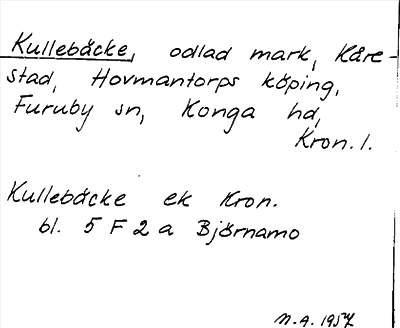 Kullebäcke, odlad mark, Kåre-
stad, Hovmantorps köping,
Furuby sn, Konga hd,
Kron. l.
Kullebäcke ek Kron.
bl. 5 F 2 a Björnamo
M.A. 1957